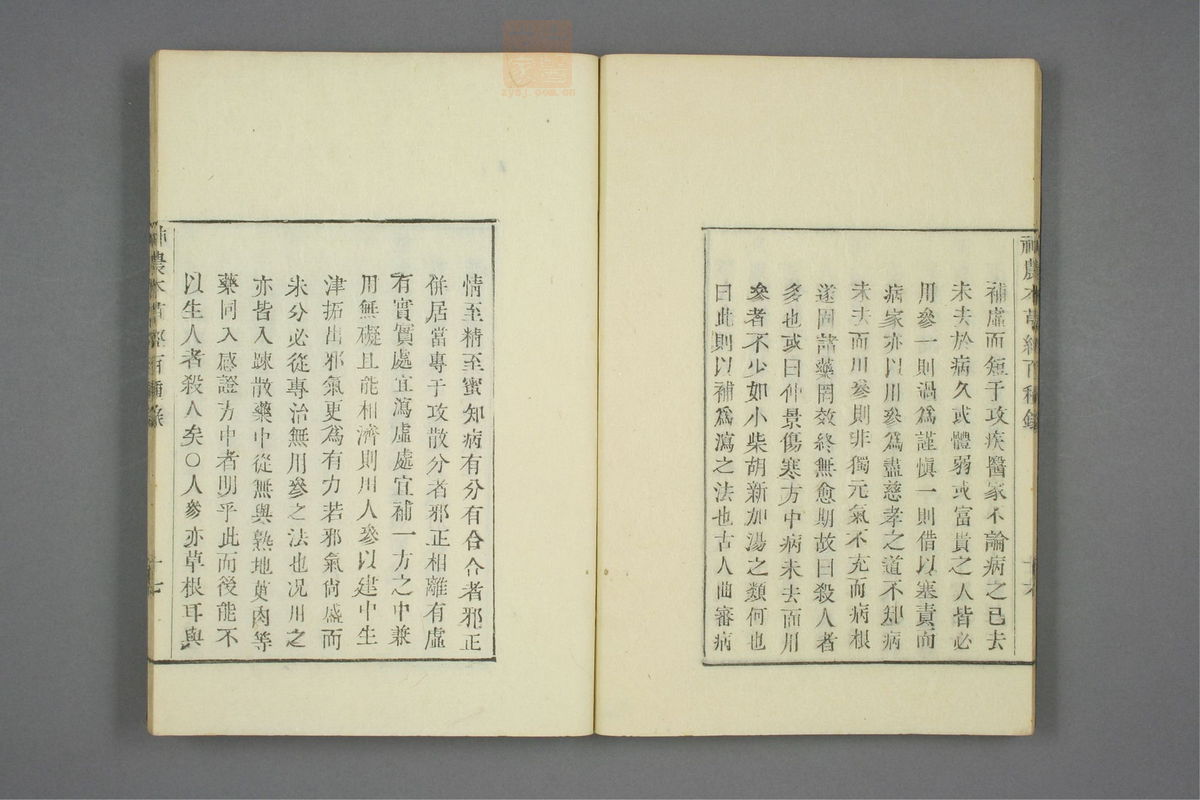 神農本草經百種錄
十六
補虛而短于攻疾醫家不論病之已去
未去於病久或體弱或富貴之人皆必
用參一則過爲謹愼一則借以塞責而
病家亦以用參爲盡慈孝之道不知病
未去而用參則非獨元氣不充而病根
遂固諸藥罔效終無愈期故曰殺人者
多也或曰仲景傷寒方中病未去而用
參者不少如小柴胡新加湯之類何也
曰此則以補爲瀉之法也古人曲審病
情至精至蜜知病有分有合合者邪正
併居當專于攻散分者邪正相離有虛
有實實處宜瀉虛處宜補一方之中兼
用無礙且能相濟則用人參以建中生
津拓出邪氣更爲有力若邪氣尙盛而
未分必從專治無用參之法也况用之
亦皆入疎散藥中從無與熟地萸肉等
藥同入感證方中者明乎此而後能不
以生人者殺人矣○人參亦草根耳與
神農本草經百種錄
十七
zysj.com.cn